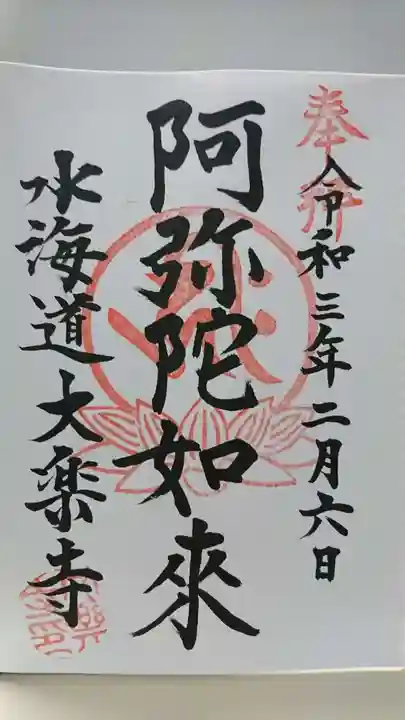 奉拝
令和三年二月六日
阿弥陀如来
水海道大楽寺